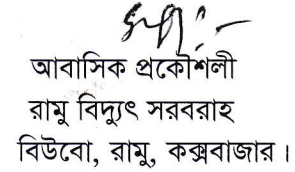 আবাসিক প্রকৌশলী
রামু বিদ্যুৎ সরবরাহ
বিউবো, রামু, কক্সবাজার।